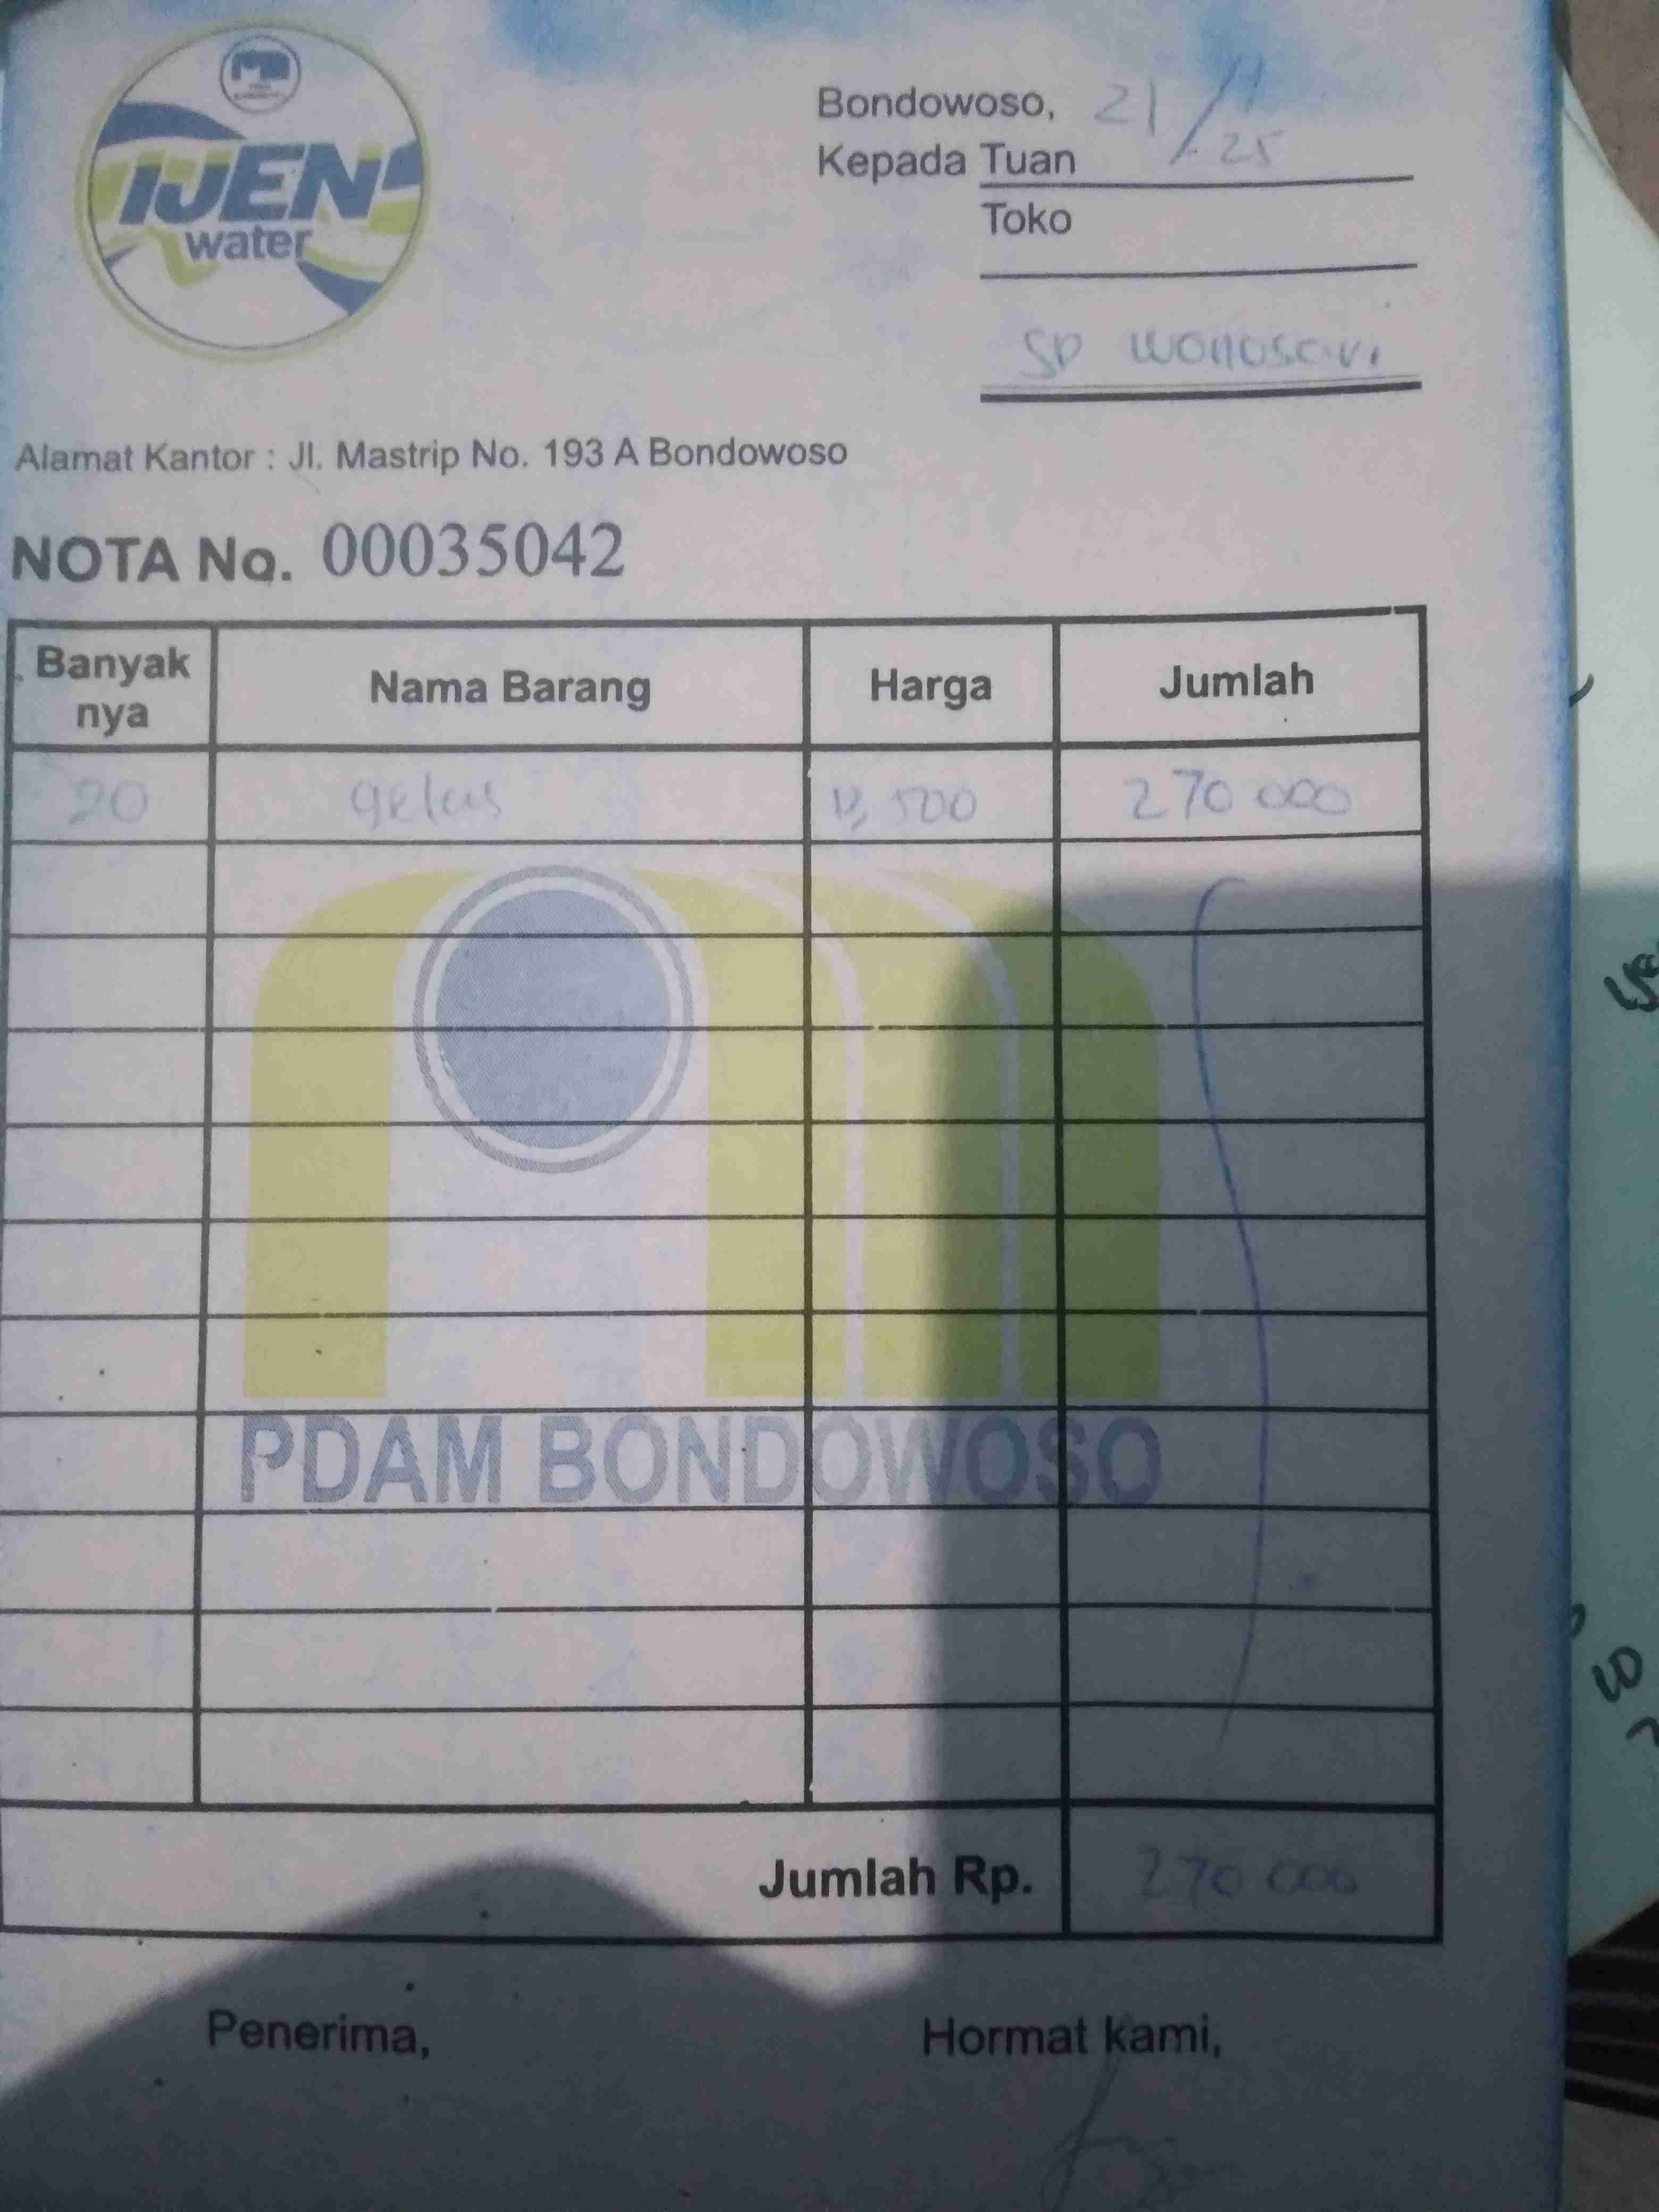 IJEN
water
Bondowoso, 21/11-25
Kepada Tuan
Toko
SD Wonosari
Alamat Kantor : Jl. Mastrip No. 193 A Bondowoso
NOTA No. 00035042
Banyak nya Nama Barang Harga Jumlah
20 gelas 13,500 270 000
PDAM BONDOWOSO
Jumlah Rp. 270 000
Penerima, Hormat kami,